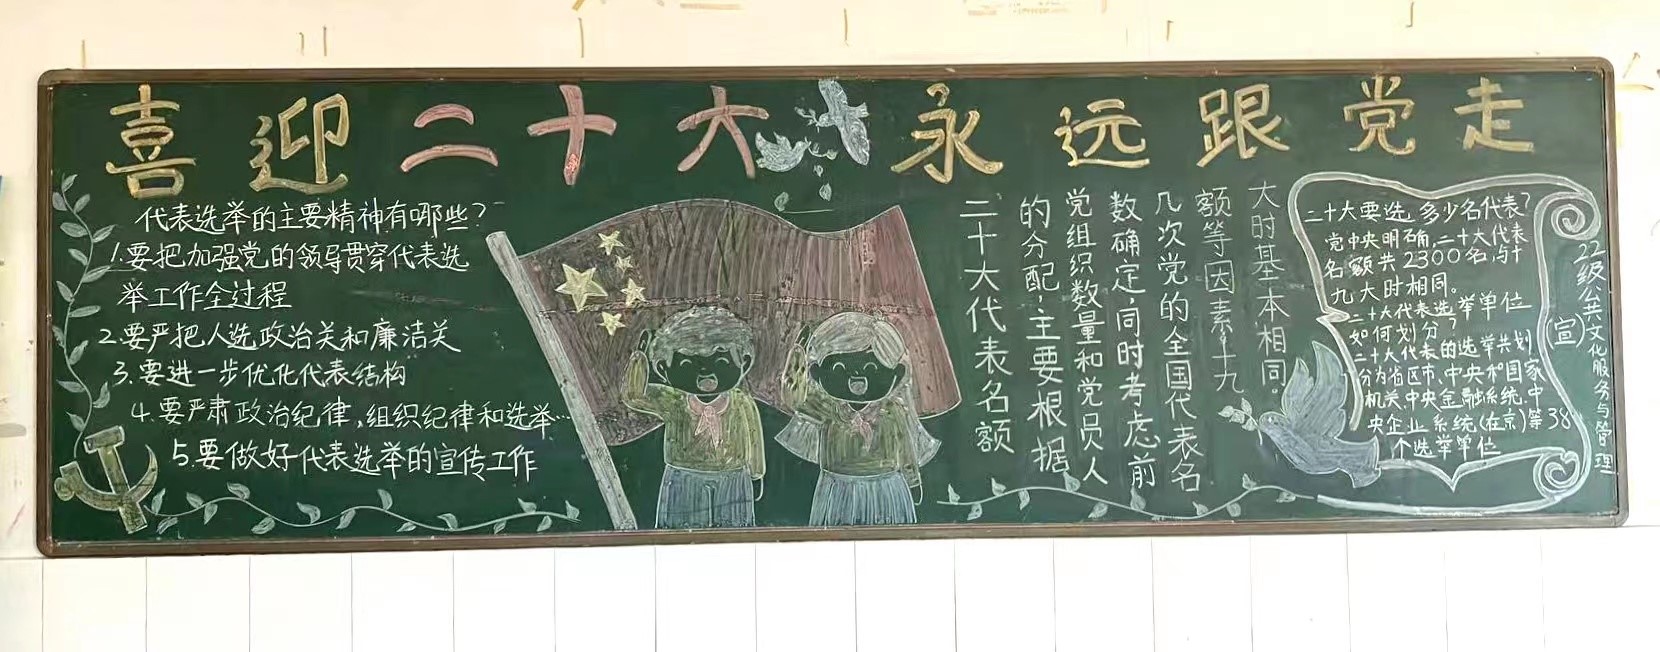 喜迎二十六 永远跟党走
代表选举的主要精神有哪些?
1.要把加强党的领导贯穿代表选
举工作全过程
2.要严把人选政治关和廉洁关
3.要进一步优化代表结构
4.要严肃政治纪律,组织纪律和选举…
5.要做好代表选举的宣传工作
二十大代表名额
的分配,主要根据
党组织数量和党员人
数确定,同时考虑前
几次党的全国代表名
额等因素,十九
大时基本相同。
二十大要选多少名代表?
党中央明确,二十大代表
名额共2300名,与十
九大时相同。
二十大代表选举单位
如何划分?
二十大代表的选举共划
分为省区市、中央和国家
机关、中央金融系统、中
央企业系统(在京)等38
个选举单位
22级公共文化服务与管理
(宣)